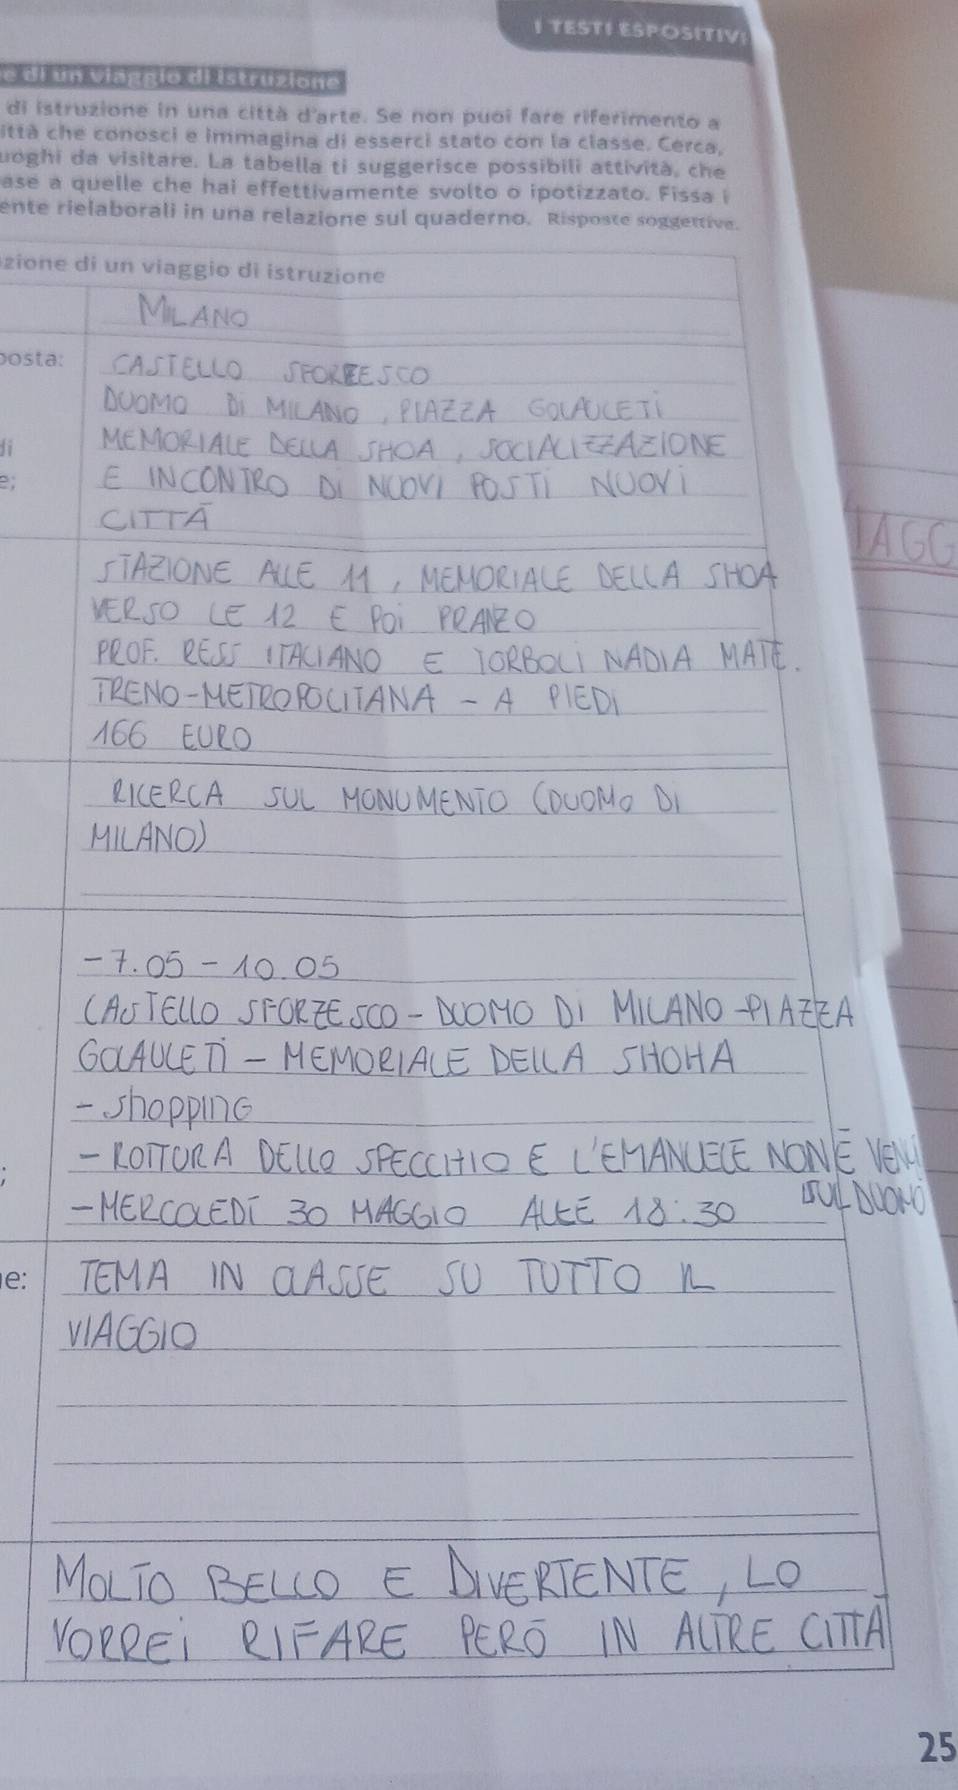 I TESTI ESPOSITIVI
e di un viaggio di istruzione
di istruzione in una città d'arte. Se non puoi fare riferimento a
ittà che conosci e immagina di esserci stato con la classe. Cerca,
uoghi da visitare. La tabella ti suggerisce possibili attività, che
ase a quelle che hai effettivamente svolto o ipotizzato. Fissa i
ente rielaborali in una relazione sul quaderno. Risposte soggettive.
zione di un viaggio di istruzione
MILANO
posta: CASTELLO SFORZESCO
DUOMO DI MILANO, PIAZZA GOLAUCETI
di MEMORIALE DELLA SHOA, SOCIALIZZAZIONE
e; E INCONTRO DI NUOVI POSTI NUOVI
CITTÀ
IAGG
STAZIONE ALLE 11, MEMORIALE DELLA SHOA
VERSO LE 12 E POI PRANZO
PROF. RESS ITALIANO E TORBOLI NADIA MATE.
TRENO-METROPOLITANA - A PIEDI
166 EURO
RICERCA SUL MONUMENTO (DUOMO DI
MILANO)
-7.05-10.05
CASTELLO SFORZESCO-DUOMO DI MILANO-PIAZZA
GOLAULETI - MEMORIALE DELLA SHOHA
- shopping
; - ROTTURA DELLO SPECCHIO E L'EMANUELE NON È
SUL DUOMO
- MERCOLEDÌ 30 MAGGIO ALLE 18:30
e: TEMA IN CLASSE SU TUTTO IL
VIAGGIO
MOLTO BELLO E DIVERTENTE, LO
VORREI RIFARE PERÒ IN ALTRE CITTÀ
25